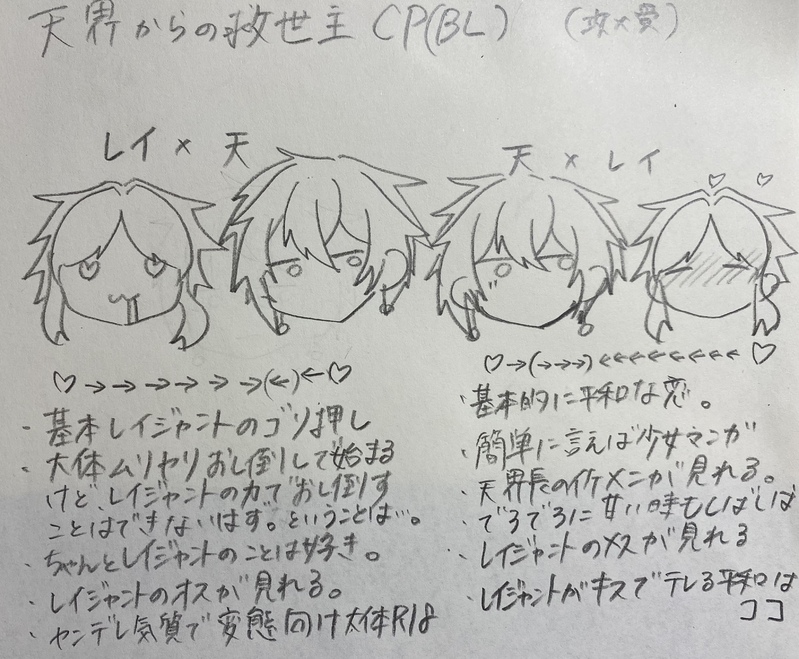 天界からの救世主 CP(BL) (攻×受)
レイ × 天
♡→→→→→→→(←)←♡
・基本レイジャントのゴリ押し
・大体ムリヤリおし倒しで始まる
けど、レイジャントの力でおし倒す
ことはできないはず。ということは…。
・ちゃんとレイジャントのことは好き。
・レイジャントのオスが見れる。
・ヤンデレ気質で変態向け大体R18
天 × レイ
♡→(→→→)←←←←←←←←♡
・基本的に平和な恋。
・簡単に言えば少女マンガ
・天界長のイケメンが見れる。
・でろでろに甘い時もしばしば
・レイジャントのメスが見れる
・レイジャントがキスでテレる平和は
ココ